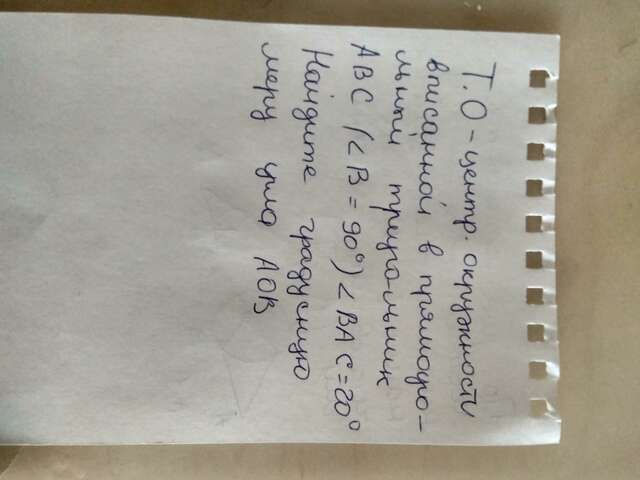 Т. О - центр. окружности
вписанной в прямоуго-
льный треугольник
АВС (<В = 90°) < ВАС = 20°
Найдите градусную
меру угла АОВ